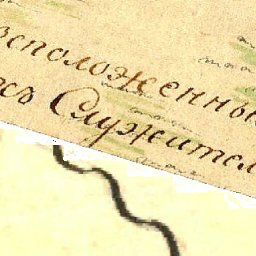 сположенны
съ Служител